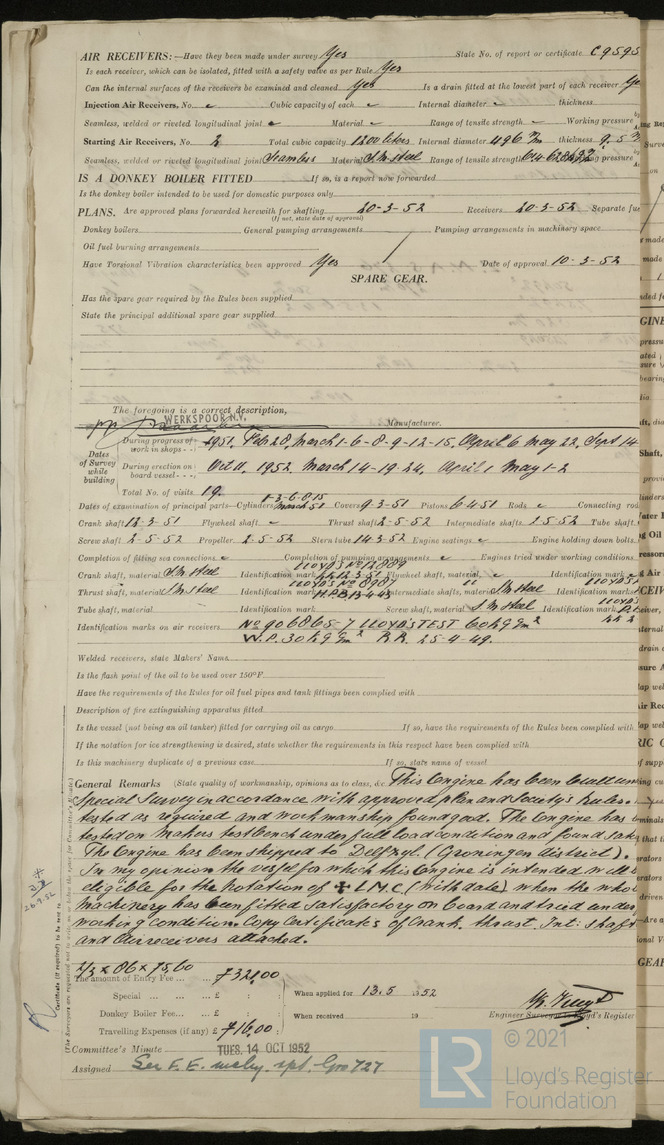 AIR RECEIVERS:—Have they been made under survey Yes State No. of report or certificate C9595
Is each receiver, which can be isolated, fitted with a safety valve as per Rule Yes
Can the internal surfaces of the receivers be examined and cleaned Yes Is a drain fitted at the lowest part of each receiver
Injection Air Receivers, No. Cubic capacity of each Internal diameter thickness
Seamless, welded or riveted longitudinal joint Material Range of tensile strength Working pressure
Starting Air Receivers, No. 2 Total cubic capacity 1200 liters Internal diameter 496 m/m thickness 9.5
Seamless, welded or riveted longitudinal joint Seamless Material S.M. steel Range of tensile strength Working pressure
IS A DONKEY BOILER FITTED If so, is a report now forwarded
Is the donkey boiler intended to be used for domestic purposes only
PLANS. Are approved plans forwarded herewith for shafting 20-3-52 Receivers 20-3-52 Separate fue
(If not, state date of approval)
Donkey boilers General pumping arrangements Pumping arrangements in machinery space
Oil fuel burning arrangements
Have Torsional Vibration characteristics been approved Yes Date of approval 10-3-52
SPARE GEAR.
Has the spare gear required by the Rules been supplied
State the principal additional spare gear supplied
The foregoing is a correct description,
WERKSPOOR N.V. Manufacturer.
Dates of Survey while building
During progress of work in shops - - 1951. Feb 28, March 1-6-8-9-12-15, April 6 May 22, Sept 14
During erection on board vessel - - - Oct 11. 1952. March 14-19-24, April 1 May 1-2
Total No. of visits 19.
Dates of examination of principal parts—Cylinders 1-3-6-8-15 March 51 Covers 9-3-51 Pistons 6-4-51 Rods Connecting rod
Crank shaft 12-3-51 Flywheel shaft Thrust shaft 2-5-52 Intermediate shafts 1-5-52 Tube shaft
Screw shaft 2-5-52 Propeller 2-5-52 Stern tube 14-3-52 Engine seatings Engine holding down bolts
Completion of fitting sea connections Completion of pumping arrangements Engines tried under working conditions
Crank shaft, material S.M. steel Identification mark LLOYD'S No 12889 12-3-51 Flywheel shaft, material Identification mark
Thrust shaft, material S.M. steel Identification mark LLOYD'S No 8981 13-4-48 Intermediate shafts, material S.M. steel Identification marks LLOYD'S
Tube shaft, material Identification mark Screw shaft, material S.M. steel Identification mark LLOYD'S
Identification marks on air receivers No 906865-7 LLOYD'S TEST 60 KG/cm²
W.P. 30 KG/cm² R.R. 25-4-49.
Welded receivers, state Makers' Name
Is the flash point of the oil to be used over 150°F.
Have the requirements of the Rules for oil fuel pipes and tank fittings been complied with
Description of fire extinguishing apparatus fitted
Is the vessel (not being an oil tanker) fitted for carrying oil as cargo If so, have the requirements of the Rules been complied with
If the notation for ice strengthening is desired, state whether the requirements in this respect have been complied with
Is this machinery duplicate of a previous case If so, state name of vessel
General Remarks (State quality of workmanship, opinions as to class, &c. This Engine has been built un
Special Survey in accordance with approved plan and Society's Rules.
tested as required and workmanship found good. The Engine has
tested on Makers testbench under full load condition and found
The Engine has been shipped to Delfzyl. (Groningen district).
In my opinion the vessel for which this Engine is intended will
eligible for the Notation of ✠ L.M.C. (with date) when the whol
machinery has been fitted satisfactory on board and tried under
working condition. Copy Certificates of Crank, thrust, Int: shaft
and Air receivers attached.
2/3 x 86 x 75,60
The amount of Entry Fee ... ... ƒ 321,00
Special ... ... ... £ : : When applied for 13.5 1952
Donkey Boiler Fee ... ... £ : : When received 19
Travelling Expenses (if any) £ ƒ 16,00
Engineer Surveyor to Lloyd's Register
Committee's Minute TUES. 14 OCT 1952
Assigned See F.E. mchy. rpt. Gro 727
© 2021
LR
Lloyd's Register
Foundation